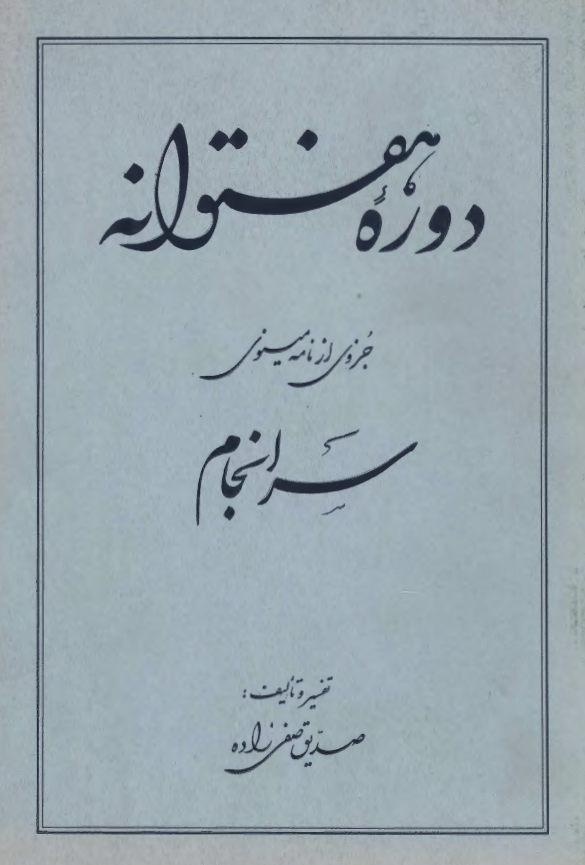 دورهٔ هفتوانه
جُزوی از نامه مینوی
سرانجام
تفسیر و تألیف :
صدّیق صفی‌زاده